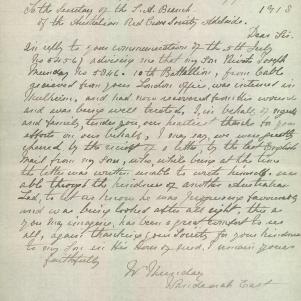 To the Secretary of the S.A. Branch 1918
of the Australian Red Cross Society, Adelaide.
Dear Sir.
In reply to your communication of the 5th July
No 5456) advising me that my Son Private Joseph
No 5846. 10th Battalion, from Cable
received from your London Office, was interned in
and had now recovered from his wounds
and was being well treated. I in behalf of myself
and family, tender you our heartiest thanks for your
efforts on our behalf, I may say, we were greatly
cheered by the receipt of a letter by the last English
Mail from my Son, who, while being at the time
the letter was written unable to write himself, was
able through the kindness of another Australian
Lad, to let us know he was progressing favourably
and was being looked after all right, this as
you may imagine, has been a great comfort to us
all, again thanking your Society for your kindness
to my Son in his Hour of need. I remain yours
faithfully
W
East